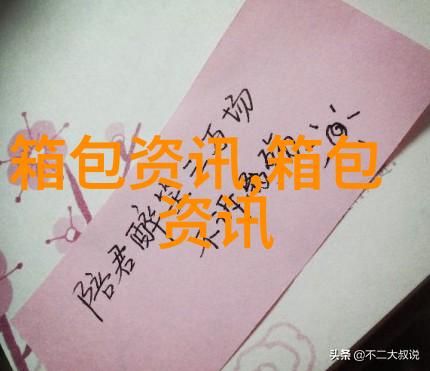 箱包资讯,箱包
资讯
陪君醉笑三百场
不诉离殇
头条 @不二大叔说